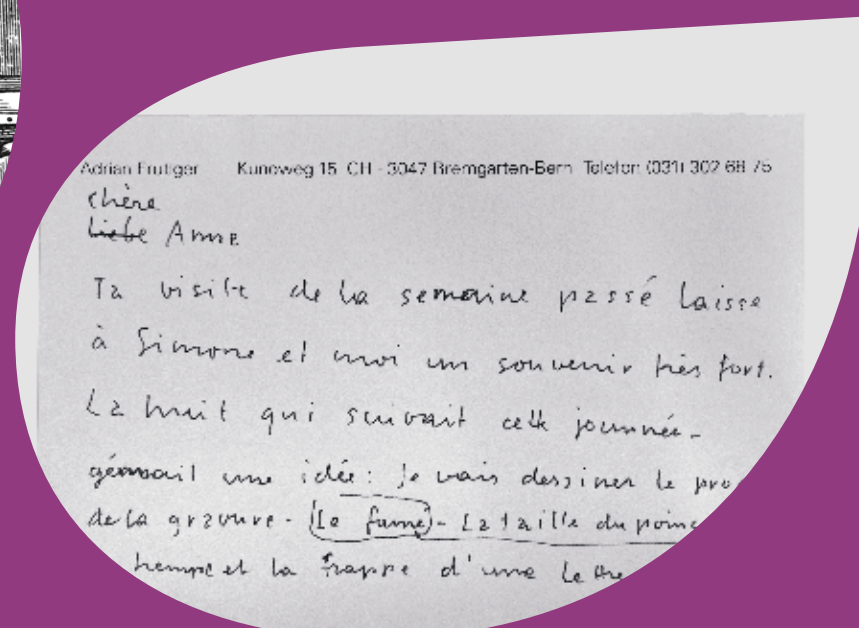 Adrian Frutiger Kunoweg 15 CH - 3047 Bremgarten-Bern Telefon (031) 302 68 75
chère
liebe Anne
Ta visite de la semaine passé laisse
à Simone et moi un souvenir très fort.
La nuit qui suivait cette journée-
une idée: je vais dessiner le
de la gravure - (le fumé) - La taille du
trempe et la frappe d'une lettre